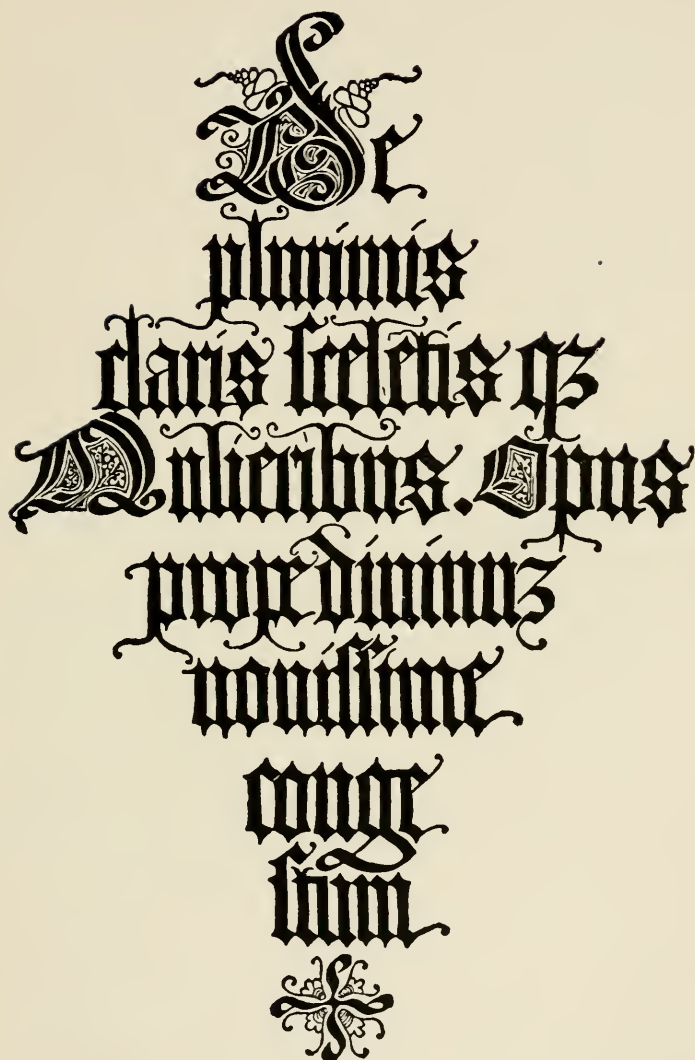 De
plurimis
claris sceletis qꝫ
Mulieribus. Opus
prope diuinuꝫ
nouissime
conge
stum